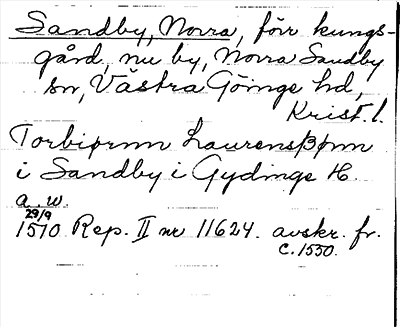 Sandby, Norra, förr kungs-
gård, nu by, Norra Sandby
sn, Västra Göinge hd,
Krist. l.
Torbiørnn Laurensβønn
i Sandby i Gydinge H.
a. w.
29/9
1510 Rep. II nr 11624. avskr. fr.
c. 1550.